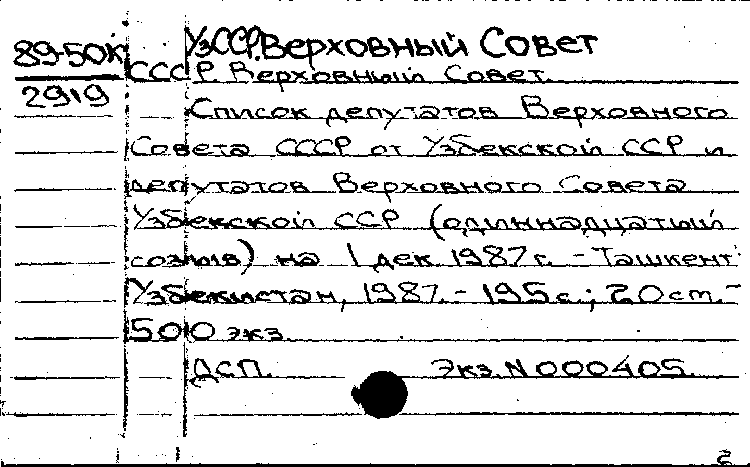 89-50к УзССР. Верховный Совет
2919 СССР. Верховный Совет.
Список депутатов Верховного
Совета СССР от Узбекской ССР и
депутатов Верховного Совета
Узбекской ССР (одиннадцатый
созыв) на 1 дек. 1987 г. - Ташкент:
Узбекистан, 1987. - 195 с.; 20 cm. -
500 экз.
ДСП. Экз. N 000405.
2